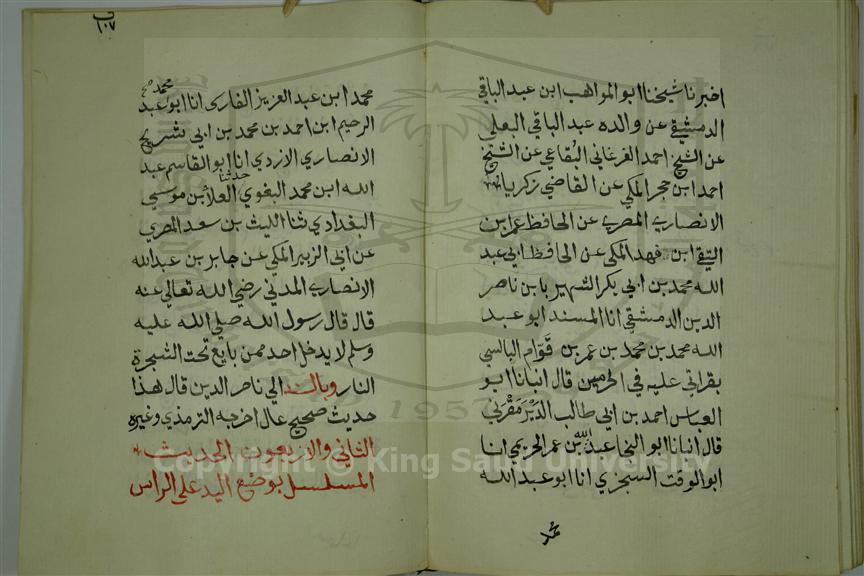 اخبرنا شيخنا ابو المواهب ابن عبد الباقي
الدمشقي عن والده عبد الباقي البعلي
عن الشيخ احمد الفرغاني البقاعي عن الشيخ
احمد ابن حجر المكي عن القاضي زكريا
الانصاري المصري عن الحافظ عمر بن
التقي ابن فهد المكي عن الحافظ ابي عبد
الله محمد بن ابي بكر الشهير بابن ناصر
الدين الدمشقي انا المسند ابو عبد
الله محمد بن محمد بن عمر بن قوام البالسي
بقراتي عليه في الحرمين قال انبانا ابو
العباس احمد بن ابي طالب الدير مقرني
قال انبانا ابو النجا عبد الله بن عمر الحريمي انا
ابو الوقت السجزي انا ابو عبد الله
محمد
١٠٧
محمد ابن عبد العزيز الفارسي انا ابو محمد عبد
الرحيم ابن احمد بن محمد بن ابي شريح
الانصاري الازدي انا ابو القاسم عبد
الله ابن محمد البغوي حدثنا العلا بن موسي
البغدادي ثنا الليث بن سعد المصري
عن ابي الزبير المكي عن جابر بن عبد الله
الانصاري المدني رضي الله تعالي عنه
قال قال رسول الله صلي الله عليه
وسلم لا يدخل احد ممن بايع تحت الشجرة
النار وبالسند الي ناصر الدين قال هذا
حديث صحيح عال اخرجه الترمذي وغيره
الثاني والاربعون الحديث
المسلسل بوضع اليد علي الراس
Copyright © King Saud University
1957